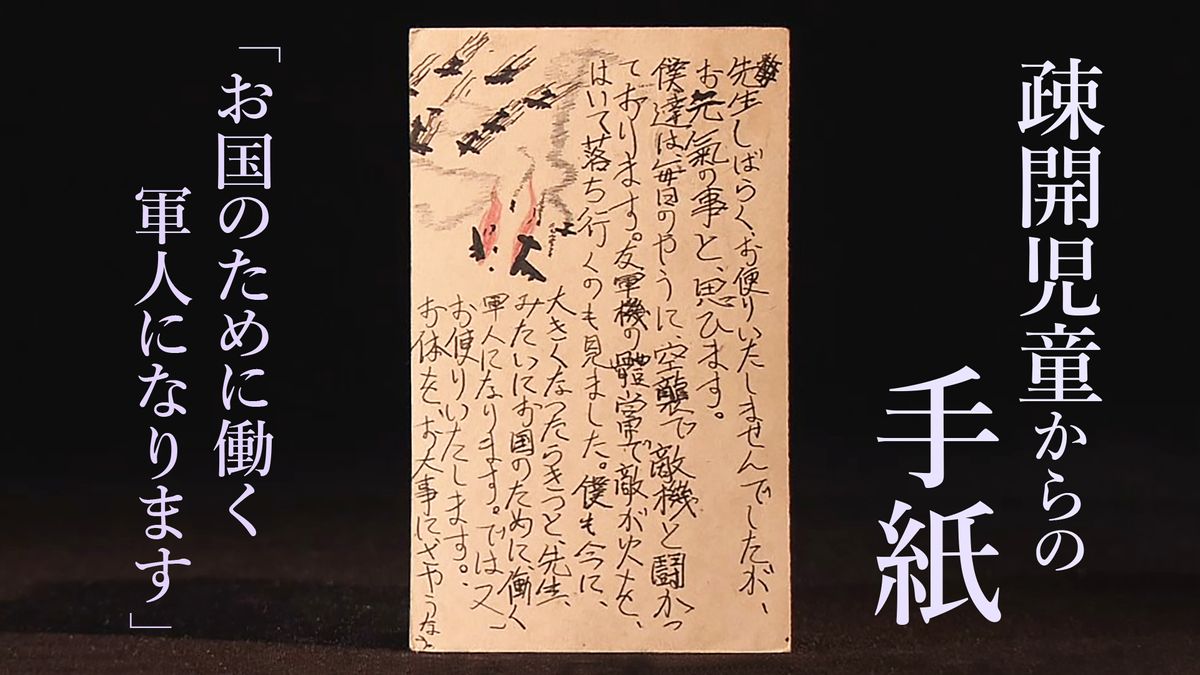 疎開児童からの
手紙
先生しばらく、お便りいたしませんでしたが、
お元氣の事と、思ひます。
僕達は、毎日のやうに、空襲で敵機と闘かつ
ております。友軍機の體當で敵が火を、
はいて落ち行くのも見ました。僕も今に、
大きくなつたらきつと、先生、
みたいにお国のために、働く
軍人になります。では又、
お便りいたします。
お体を、お大事にさやうなら
「お国のために働く
軍人になります」